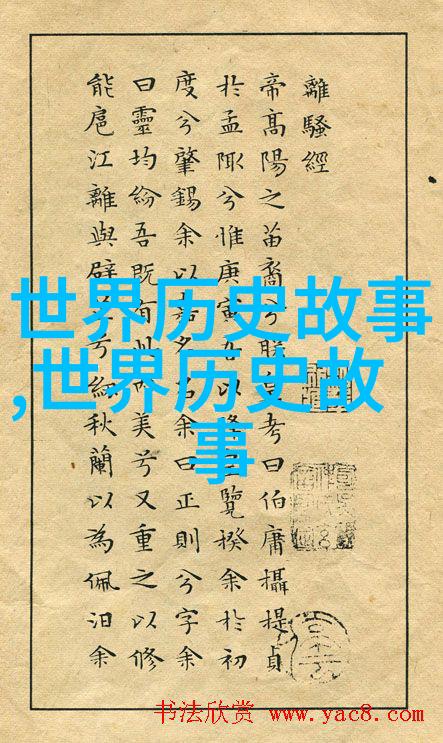 離騷經
帝高陽之苗裔兮朕皇考曰伯庸攝提貞
於孟陬兮惟庚寅吾以降皇覽揆余於初
度兮肇錫余以嘉名名余曰正則兮字余
曰靈均紛吾既有此內美兮又重之以修
能扈江離與辟芷兮紉秋蘭以為佩汨余
世界历史故事
,世界历史故
事
书法欣赏 www.yac8.com